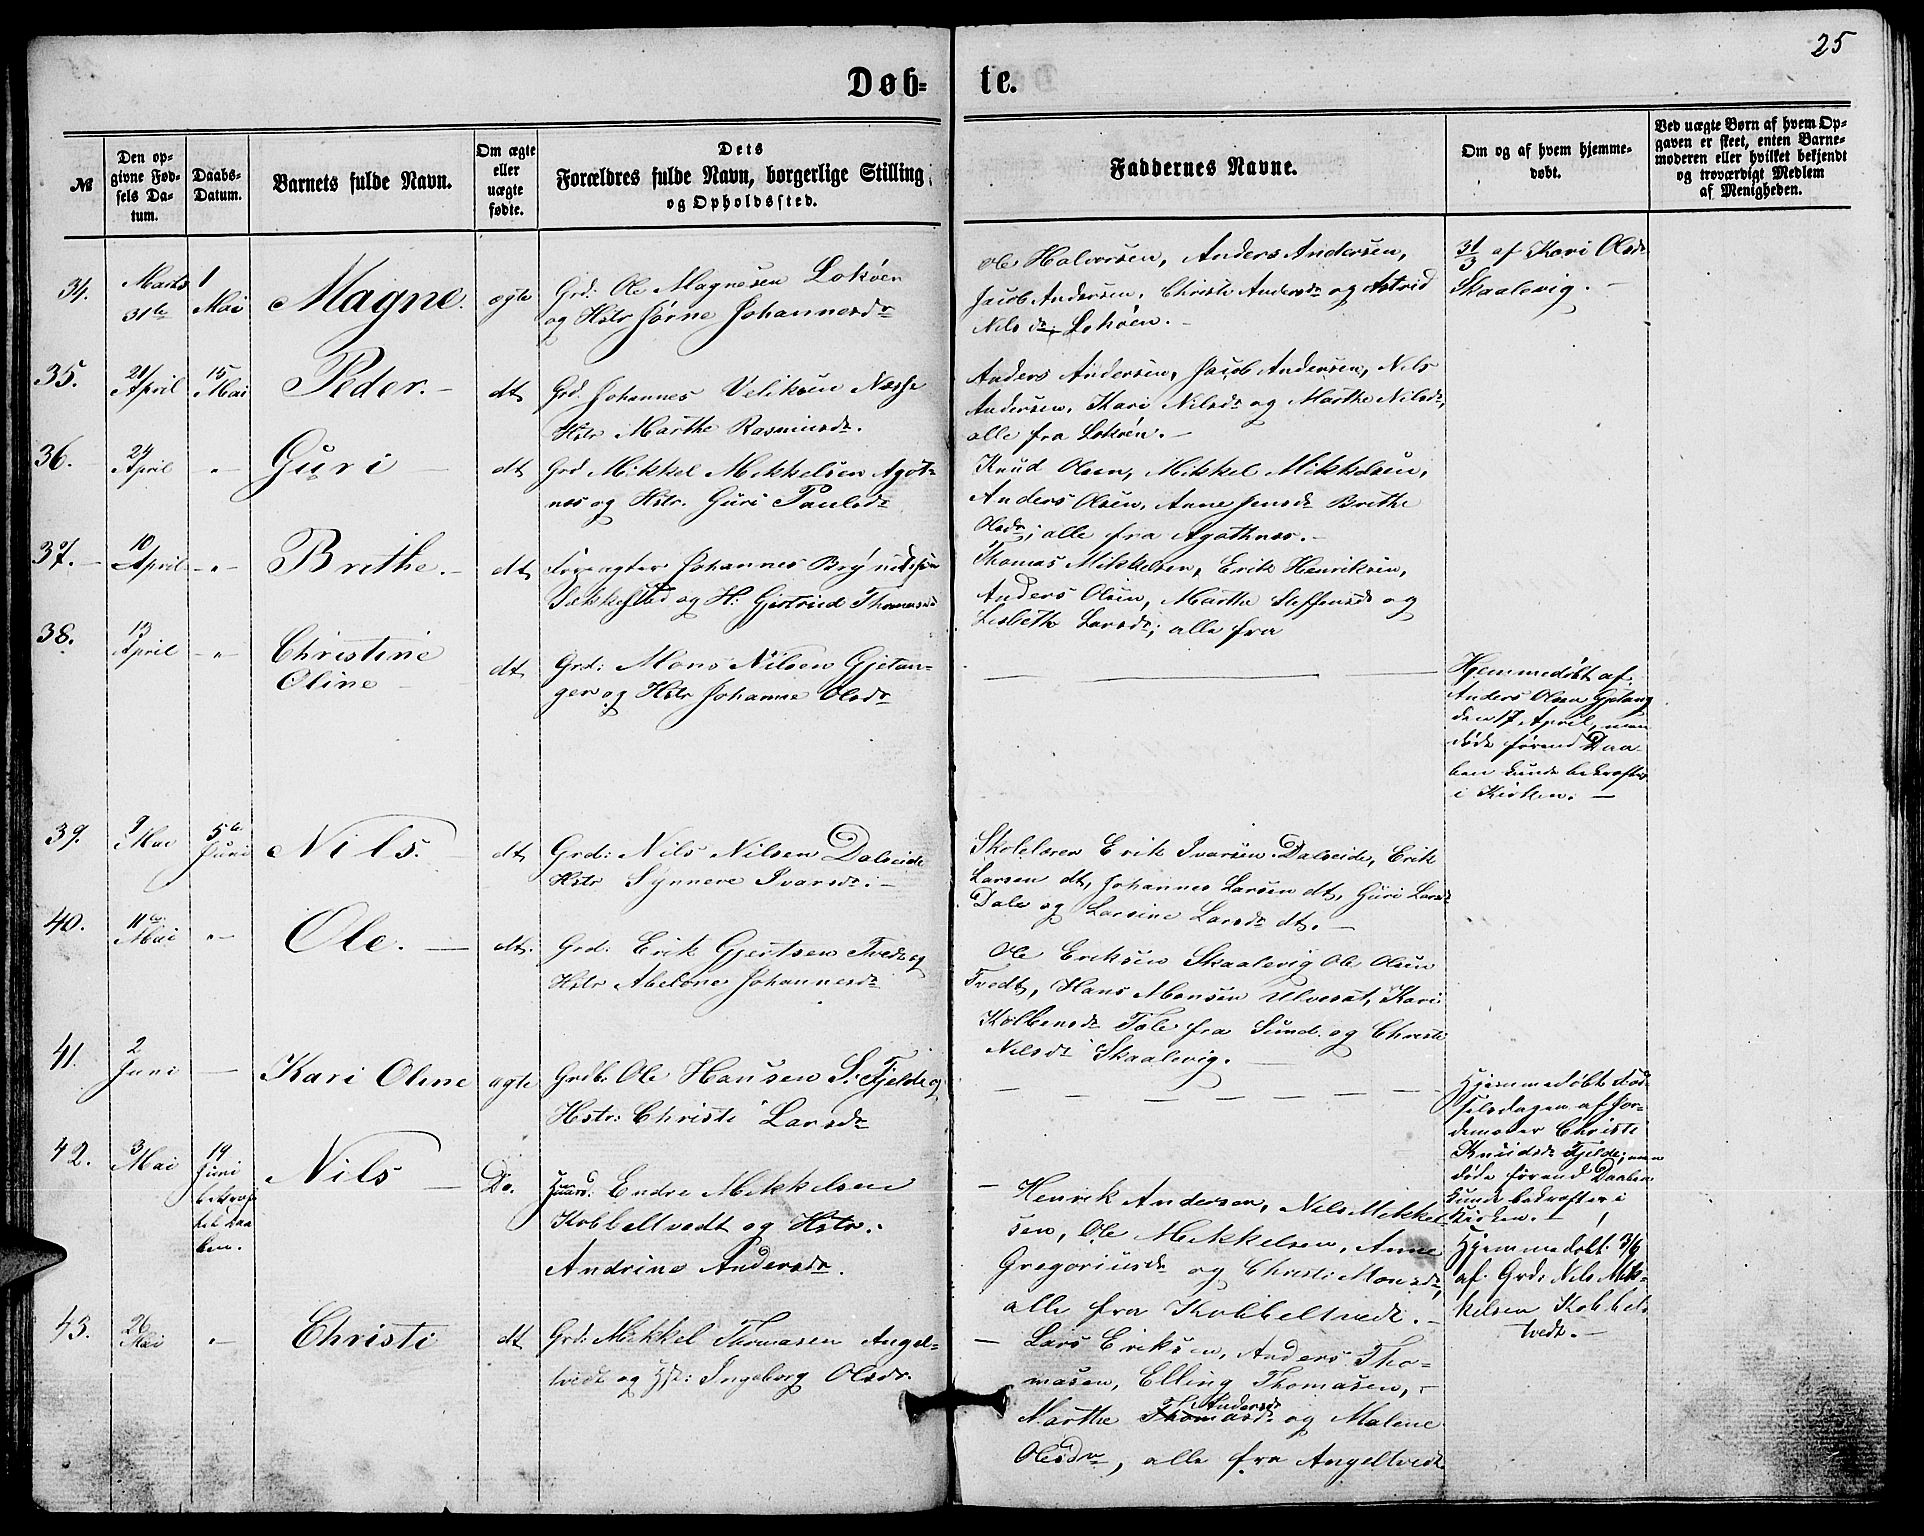 25
Døb- te.
№
Den op-
givne Fød-
sels Da-
tum.
Daabs-
Datum.
Barnets fulde Navn.
Om ægte
eller
uægte
fødte.
Dets
Forældres fulde Navn, borgerlige Stilling
og Opholdssted.
Faddernes Navne.
Om og af hvem hjemme-
døbt.
Ved uægte Børn af hvem Op-
gaven er skeet, enten Barne-
moderen eller hvilket bekjendt
og troværdigt Medlem
af Menigheden.
34.
Marts
31te
1
Mai
Magne.
ægte
Grd. Ole Magnesen Lokøen
og Hstr Sørne Johannesdr
Ole Halvorsen, Anders Andersen,
Jacob Andersen, Christi Andersdr og Astrid
Nilsdr, Lokøen.
31/3 af Kari Olsdr
Skaalevig.
35.
21/
April
15
Mai
Peder.
dt
Grd. Johannes Veliksen Nesse
Hstr Marthe Rasmusdr.
Anders Andersen, Jacob Andersen, Nils
Andersen, Kari Nilsdr og Marthe Nilsdr,
alle fra Lokøen.
36.
24
April
"
Guri
dt
Grd Mikkel Mikkelsen Agot-
nes og Hstr. Guri Paulsdr
Knud Olsen, Mikkel Mikkelsen,
Anders Olsen, Anne Jensdr Brithe
Olsdr; alle fra Agothnes.
37.
10
April
"
Brithe.
dt
Johannes Brynildsen
Tækkestad og H: Gjertrud Thomasdr
Thomas Mikkelsen, Erik Henriksen,
Anders Olsen, Marthe Steffensdr og
Lisbeth Larsdr; alle fra
38.
13
April
"
Christine
Oline
dt
Grd: Mons Nilsen Gjetan-
ger og Hstr Johanne Olsdr
Hjemmedøbt af
Anders Olsen Gjetang
den 17 April, men
døde førend Daa-
ben kunde bekræftes
i Kirken.
39.
9
Mai
5te
Juni
Nils.
dt
Grd: Nils Nilsen Dalseide
Hstr Synneve Ivarsdr.
Skolelærer Erik Ivarsen Dalseide, Erik
Larsen dt, Johannes Larsen dt, Guri Larsdr
Dale og Larsine Larsdr dt.
40.
11te
Mai
"
Ole.
dt.
Grd: Erik Gjertsen Tvedt og
Hstr Abelone Johannesdr
Ole Eriksen Skaalevig Ole Olsen
Tvedt, Hans Monsen Ulveset, Kari
Kolbensdr Tale fra Sund og Christi
Nilsdr Skaalevig.
41.
2
Juni
Kari Oline
ægte
Grdb. Ole Hansen S: Fjelde og
Hstr: Christi Larsdr
Hjemmedøbt Fød-
selsdagen af Jor-
demoder Christi
Knudsdr Fjelde, men
døde førend Daaben
kunde bekræftes i
Kirken.
42.
3
Mai
19
Juni
bekræf-
tet Daa
ben.
Nils
Do.
Huusd. Endre Mikkelsen
Kobbeltvedt og Hstr.
Andrine Andersdr.
Henrik Andersen, Nils Mikkel-
sen, Ole Mikkelsen, Anne
Gregoriusdr og Christi Monsdr,
alle fra Kobbeltvedt.
Hjemmedøbt 3/6
af Grd: Nils Mik-
kelsen Kobbel-
tvedt.
43.
26
Mai
"
Christi
dt
Grd: Mikkel Thomasen Angel-
tvedt og Hst: Ingeborg Olsdr.
Lars Eriksen, Anders Tho-
masen, Elling Thomasen,
Andersdr
Marthe Thomasdr og Malene
Olesdr, alle fra Angeltvedt